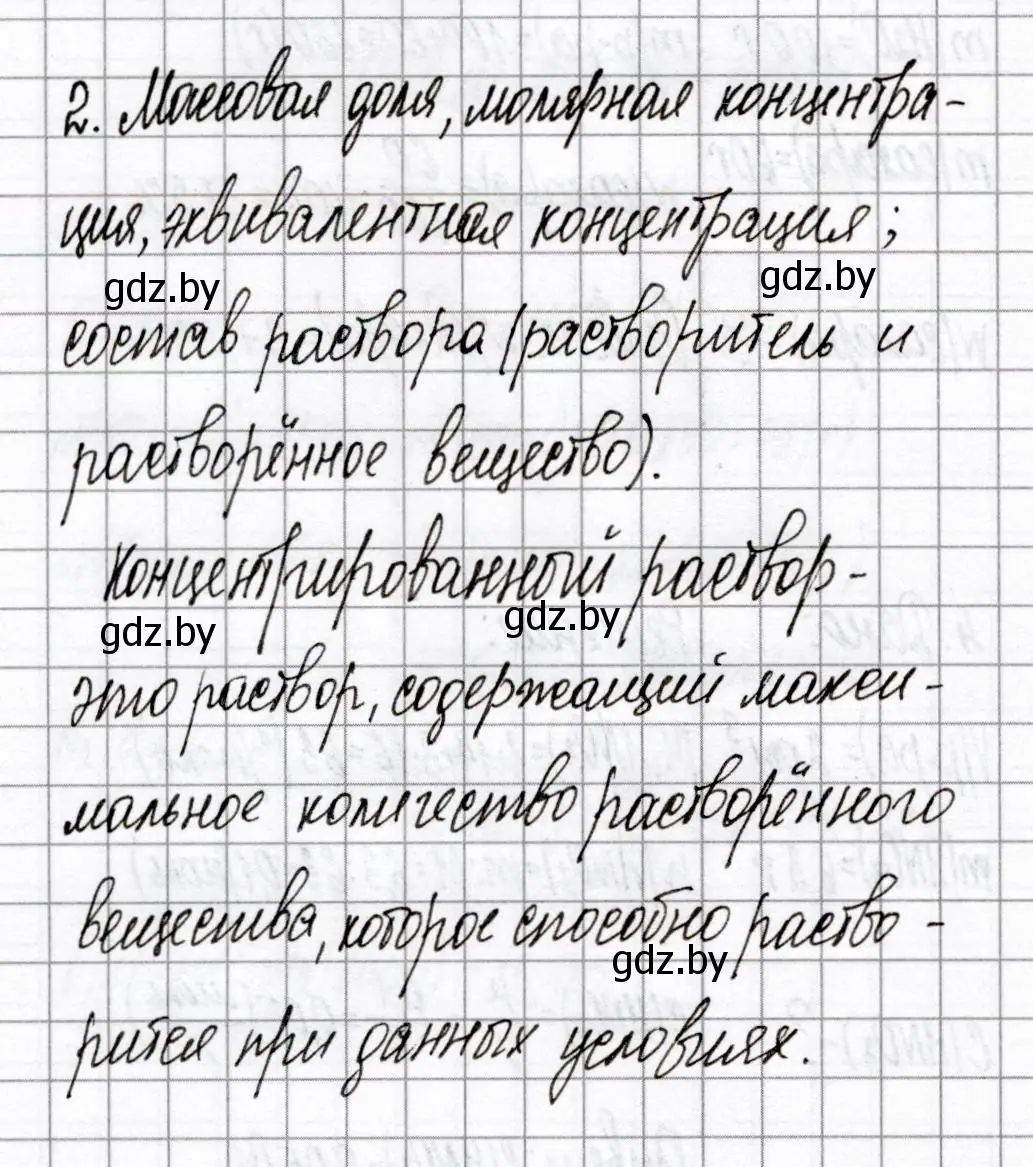 2. Массовая доля, молярная концентра-
ция, эквивалентная концентрация;
gdz.by
gdz.by
состав раствора (растворитель и
растворённое вещество).
Концентрированный раствор-
gdz.by
gdz.by
это раствор, содержащий макси-
мальное количество растворённого
вещества, которое способно раство-
gdz.by
рится при данных условиях.